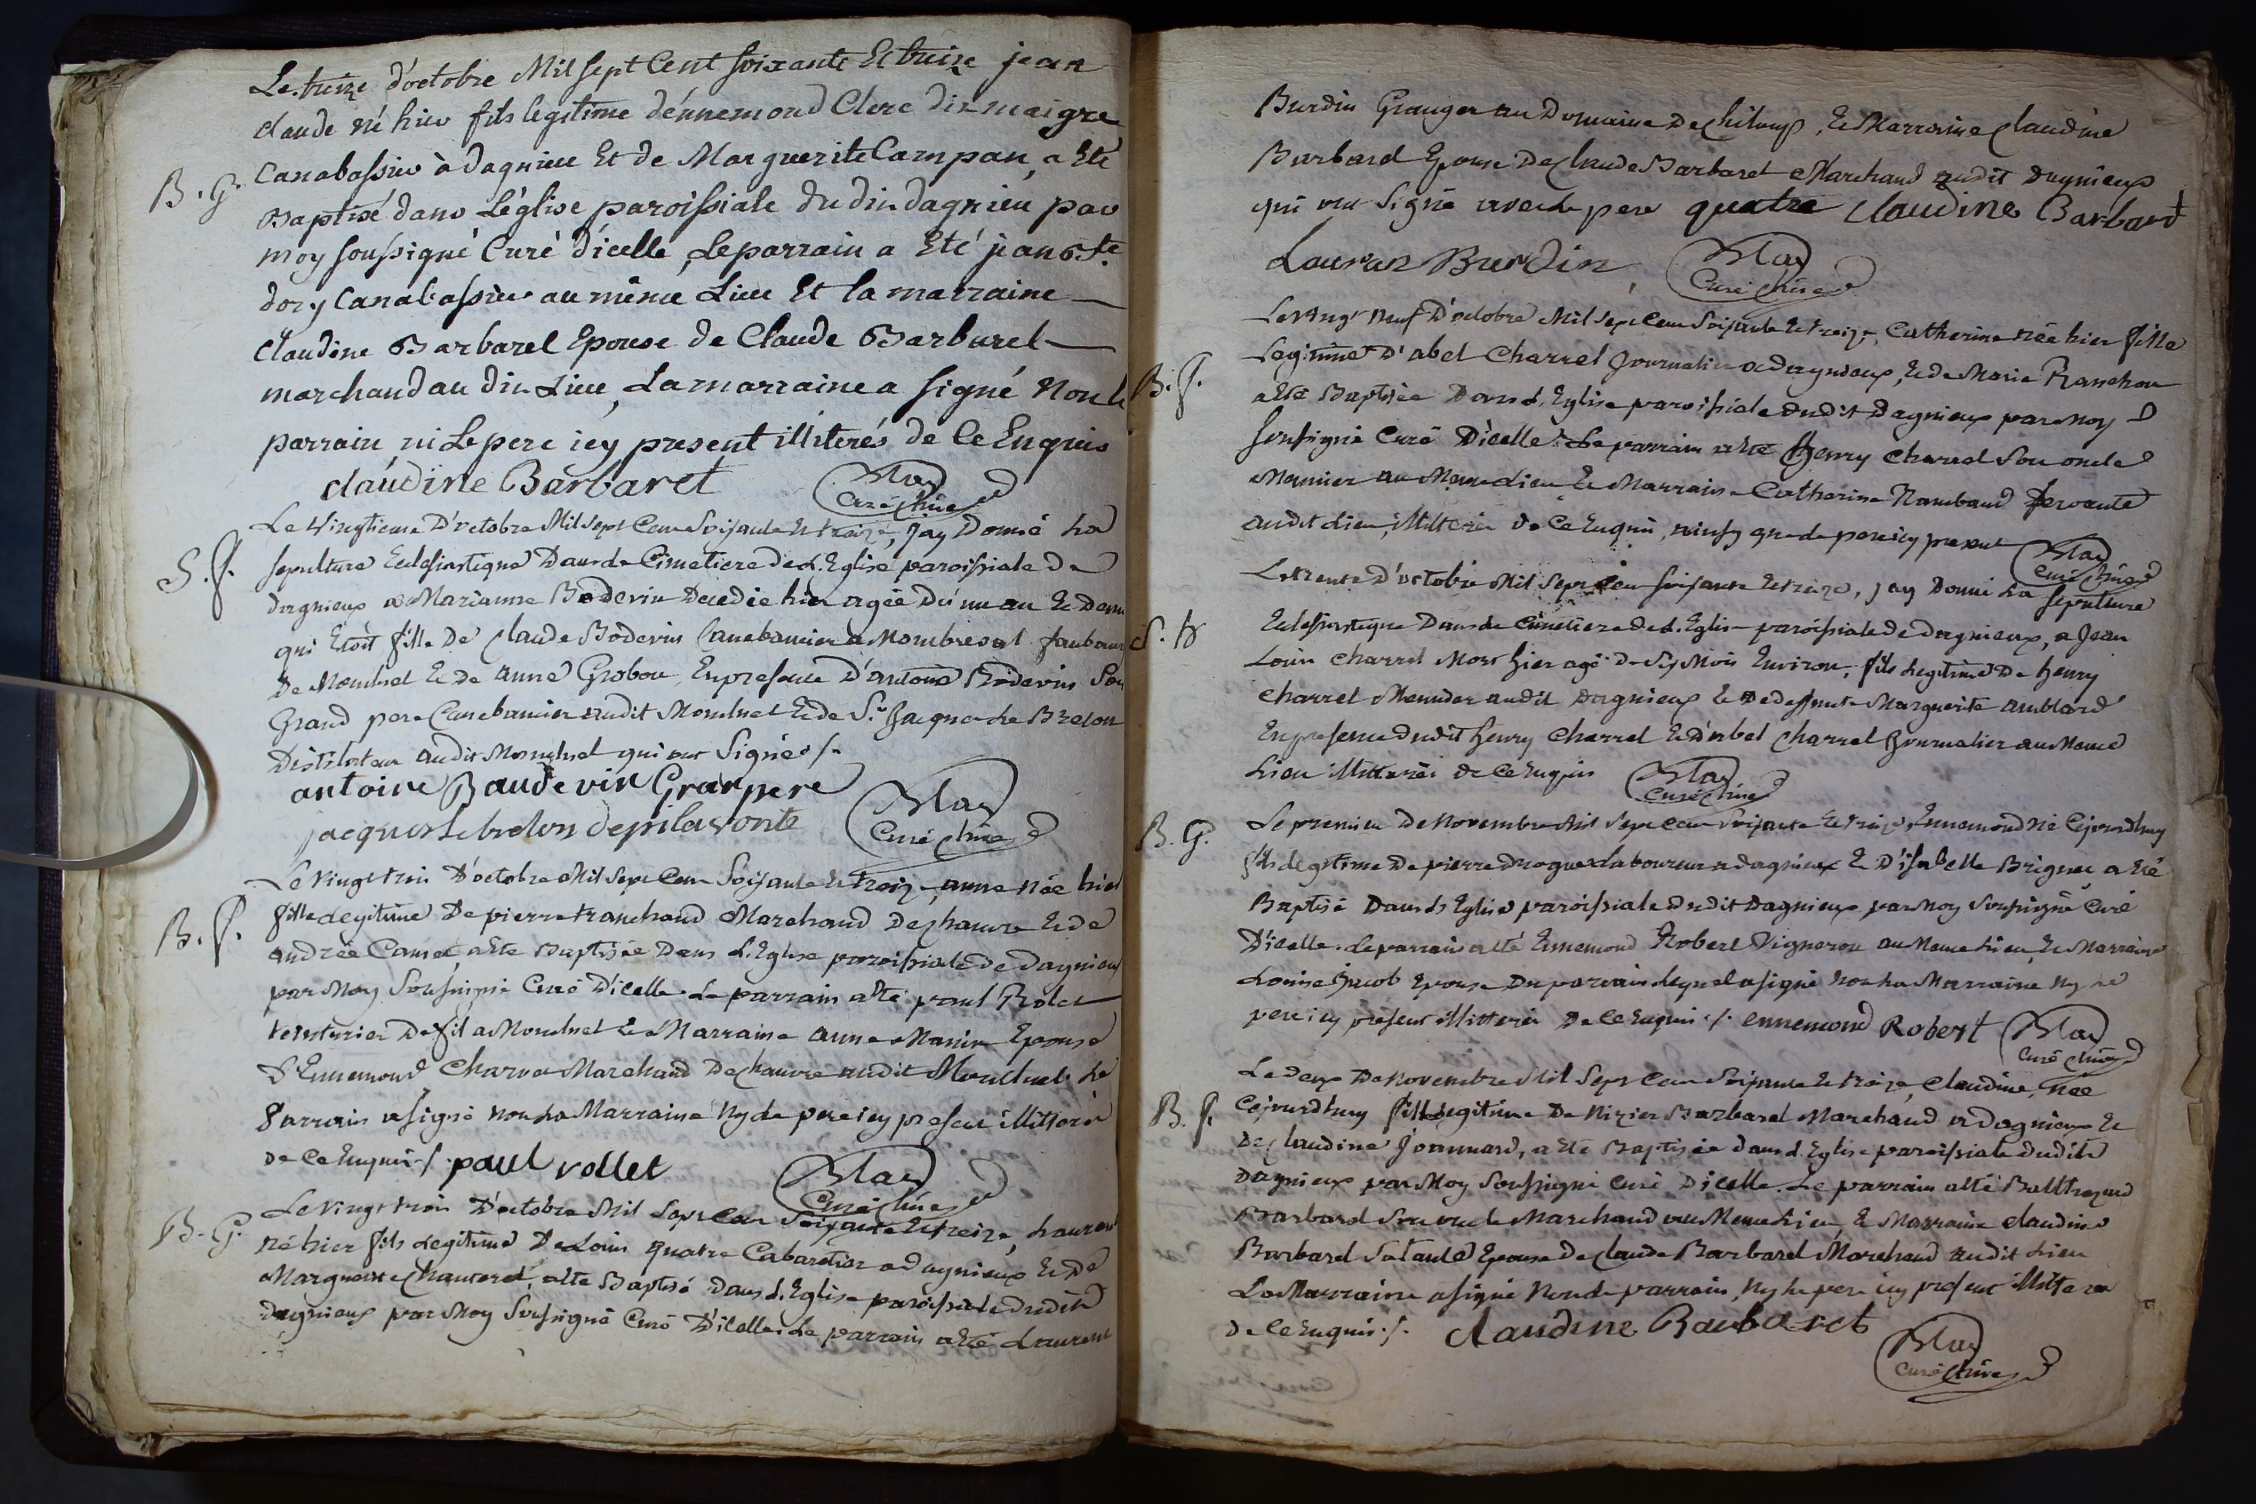 Le treize d'octobre Mil sept Cent soixante Et treize jean
claude né hier fils legitime d'ennemond Clerc dit maigre
B. G. Canabassier à dagnieu Et de Marguerite Campan, a Eté
Baptisé dans L'église paroissiale du dit dagnieu par
moy soussigné Curé d'icelle, Le parrain a Eté jean bte
dory Canabassier au même Lieu Et la marraine
Claudine Barbarel Epouse de Claude Barbarel
marchand au dit Lieu, La marraine a signé Non le
parrain ni Le pere icy present illiterés de Ce Enquis
claudine Barbaret
Blad
Curé
Le Vingtieme D'octobre Mil Sept Cent Soixante Et treize, J'ay Donné La
S. f. sepulture Eclesiastique Dans Le Cimetiere de L'Eglise paroissiale De
dagnieux a Marianne Bodevin Decedée hier agée D'un an Et Demi
qui Etoit fille De Claude Bodevin Canabassier a Fauboug
De Monluel Et De Anne Grobon, En presence D'antoine Bodevin Son
Grand pere Canabassier audit Monluel Et de Sr. Jacque Le Breton
Distilateur audit Monluel qui ont Signé ./.
antoine Baudevin Granpere
jacques Le breton
Blad
Curé
Le Vingt trois D'octobre Mil Sept Cent Soixante Et treize, anne née hier
B. f. fille Legitime De pierre tranchand Marchand De Chanvre Et De
andrée Camet a Eté Baptisée Dans L'Eglise paroissiale de Dagnieux
par Moy Soussigné Curé D'icelle. Le parrain a Eté paul Rolet
teinturier De fil a Monluel Et Marraine Anne Manin Epouse
D'Ennemond Marchand De Chanvre audit Montluel. Le
Parrain a Signé non La Marraine Ny Le pere icy present illitteré
de Ce Enquis ./. paul rollet
Blad
Curé
Le Vingt trois D'octobre Mil Sept Cent Soixante Et treize, Laurent
B. G. né hier fils Legitime De Louis quatre Cabaretier a dagnieux Et De
Marguerite Chanterel, a Eté Baptisé dans L'Eglise paroissiale dudit
dagnieux par Moy Soussigné Curé D'icelle. Le parrain a Eté Laurent
Burdin Granger au Domaine De Chiloup, Et Marraine Claudine
Barbarel Epouse De Claude Barbaret Marchand audit Dagnieux
qui ont Signé avec Le pere quatre Claudine Barbaret
Lauran Burdin
Blad
Curé
Le Vingt Neuf D'octobre Mil Sept Cent Soixante Et treize, Catherine née hier fille
B. f. Legitime D'abel Charrel Journalier a dagnieux, Et de Marie Planchon
a Eté Baptisée Dans L'Eglise paroissiale dudit Dagnieux par Moy
soussigné Curé D'icelle. Le parrain a Eté Henry Charrel Son oncle
Meunier au Meme Lieu Et Marraine Catherine Rambaud Servante
audit Lieu, illitterés de Ce Enquis, ainsy que Le pere icy present
Blad
Curé
Le trente D'octobre Mil Sept Cent soixante Et treize, J'ay Donné La Sepulture
Eclesiastique Dans Le Cimetiere de L'Eglise paroissiale de dagnieux, a Jean
Louis Charrel Mort hier agé De Six Mois Environ, fils Legitime De henry
Charrel Meunier audit Dagnieux Et De deffunte Marguerite amblard
En presence dudit Henry Charrel Et D'abel Charrel Journalier au Meme
Lieu illitterés de Ce Enquis
Blad
Curé
Le premier De Novembre Mil Sept Cent Soixante Et treize, Ennemond né Cejourdhuy
B. G. fils Legitime De pierre Laboureur a dagnieux Et D'isabelle Brignet a Eté
Baptisé Dans L'Eglise paroissiale dudit Dagnieux par Moy Soussigné Curé
D'icelle. Le parrain a Eté Ennemond Robert Vigneron au Meme Lieu, Et Marraine
Louise Jacob Epouse Du parrain Lequel a signé Non La Marraine Ny Le
pere icy present illitterés De Ce Enquis ./. ennemond Robert
Blad
Curé
Le deux De Novembre Mil Sept Cent Soixante Et treize, Claudine, née
B. f. Cejourdhuy fille Legitime De Nizier Barbarel Marchand a dagnieux Et
De Claudine Joannard, a Eté Baptisée dans L'Eglise paroissiale dudit
Dagnieux par Moy Soussigné Curé D'icelle. Le parrain a Eté Balthazard
Barbarel Son oncle Marchand au Meme Lieu, Et Marraine Claudine
Barbarel Sa tante Epouse De Claude Barbarel Marchand audit Lieu
La Marraine a signé Non Le parrain Ny Le pere icy present illitterés
de Ce Enquis ./. Claudine Barbaret
Blad
Curé